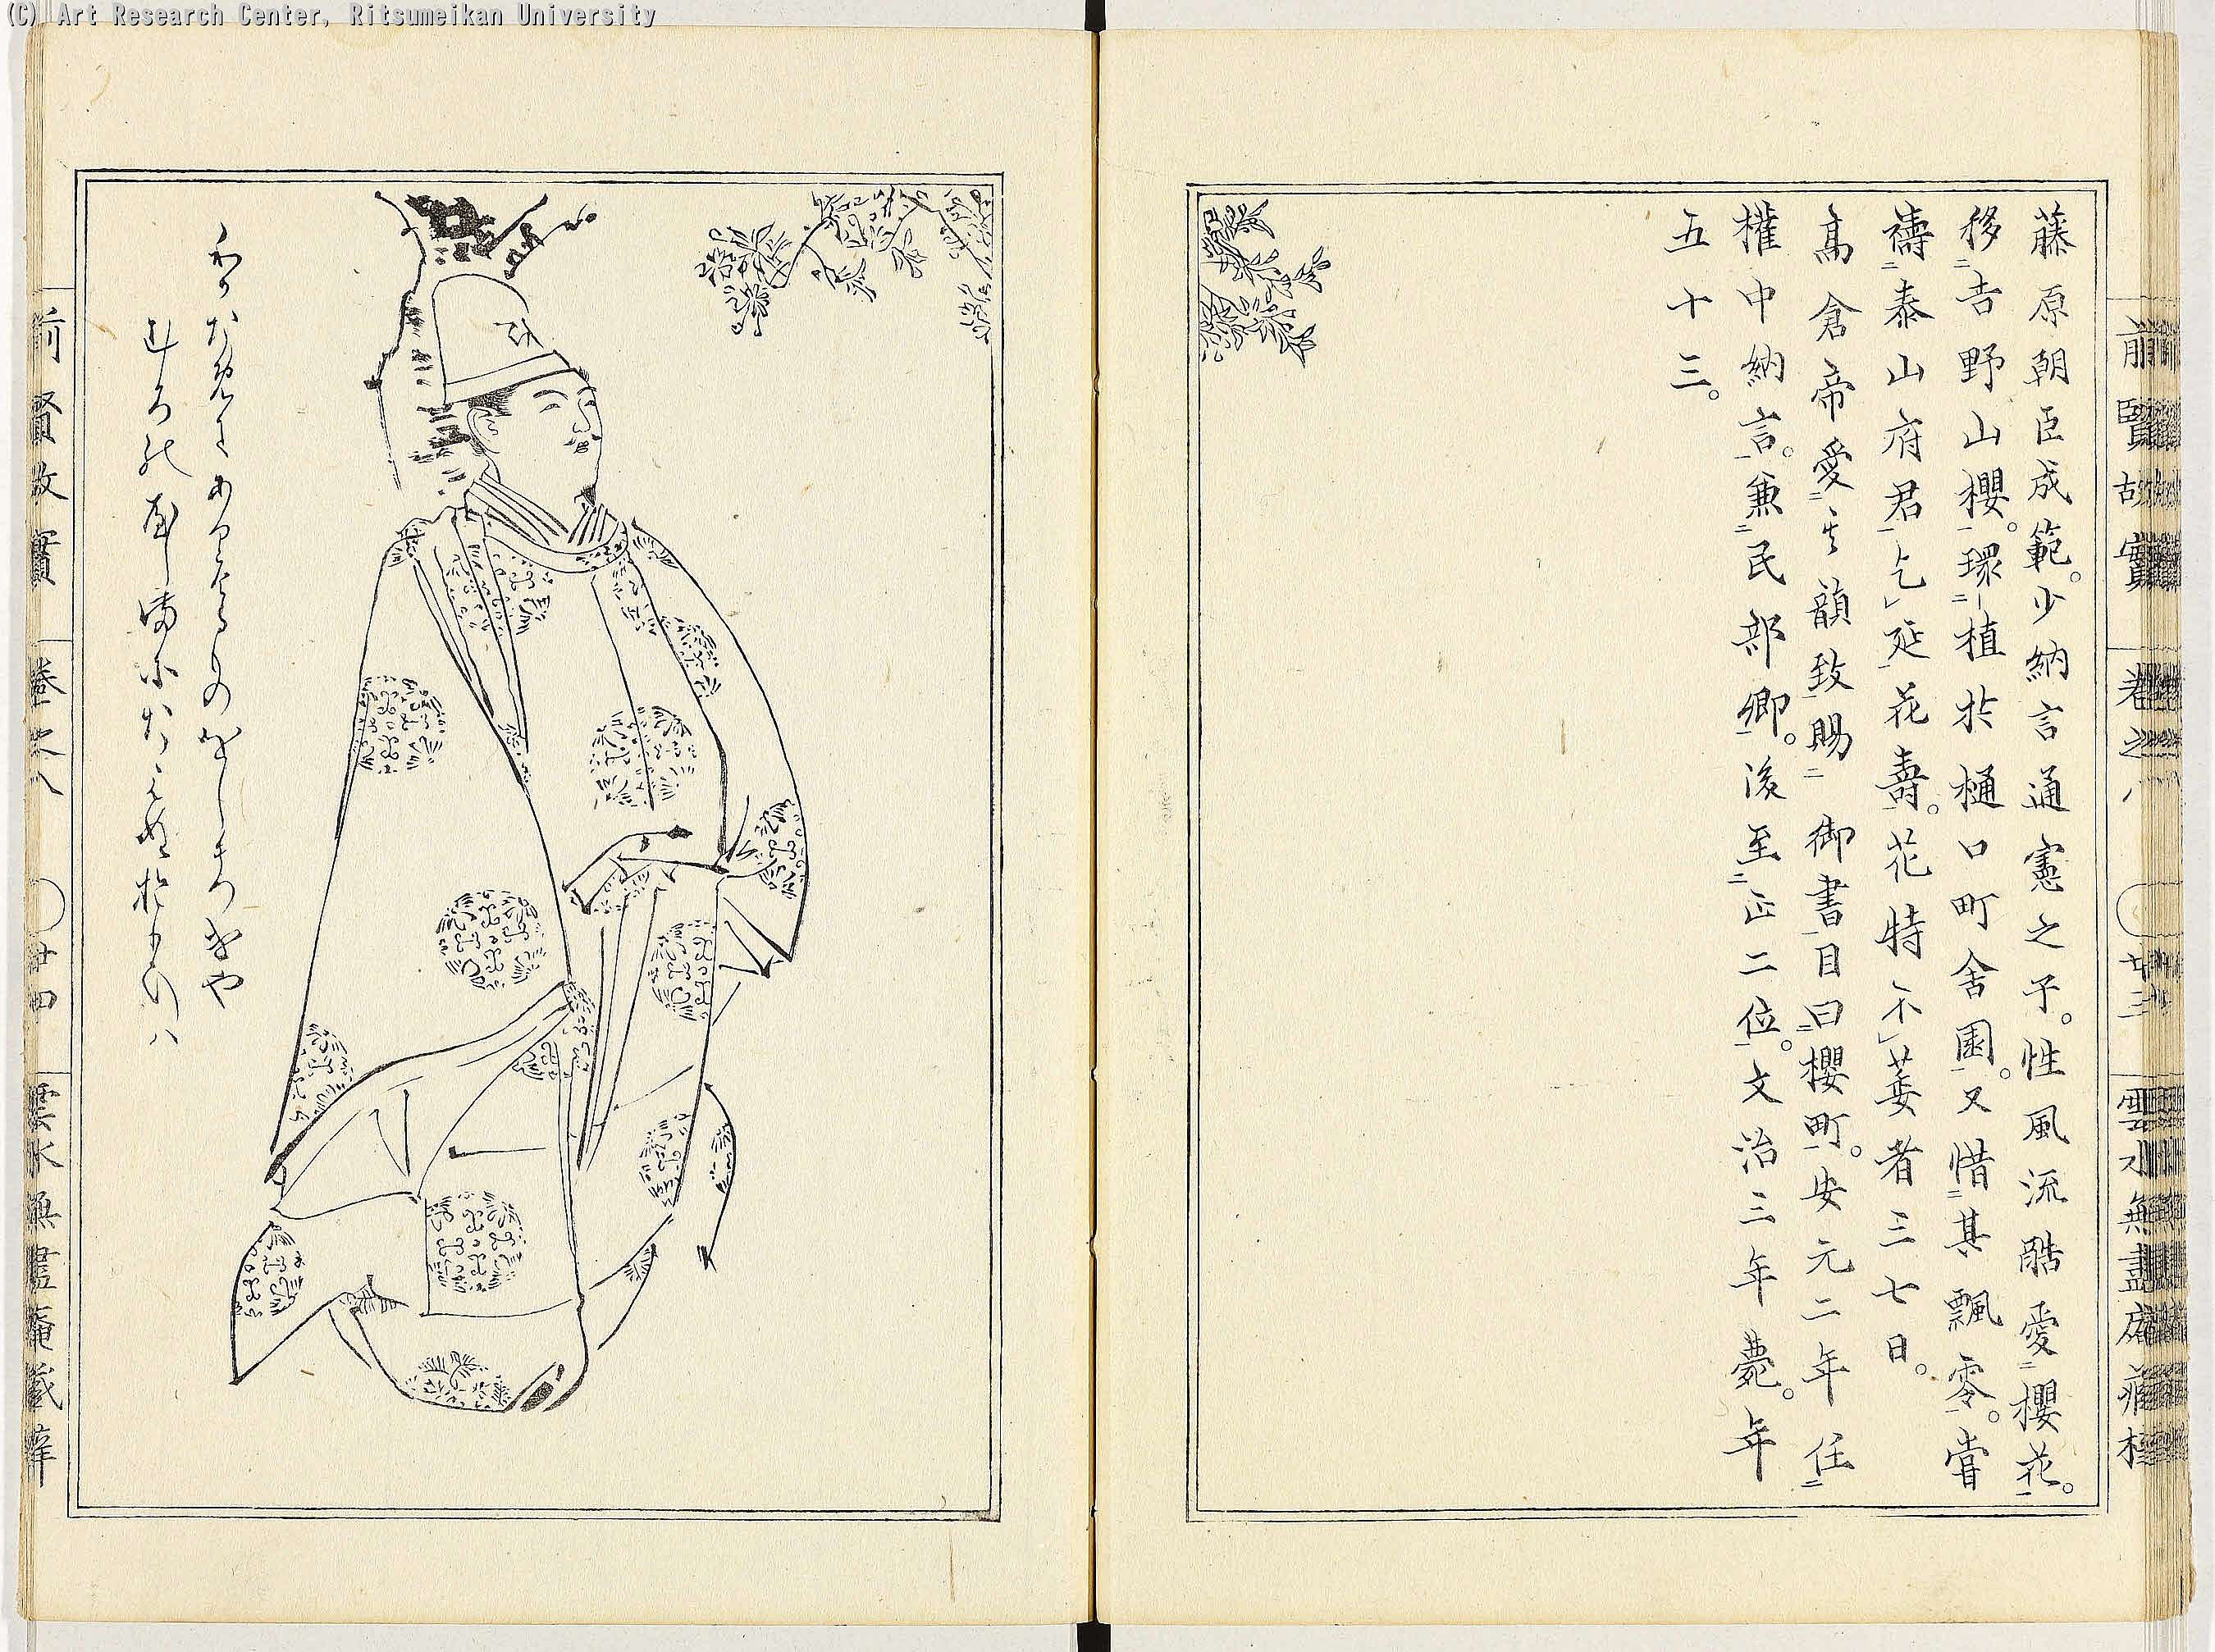 (C) Art Research Center, Ritsumeikan University
前賢故實 卷之八 廿三 雲水無盡庵藏梓
藤原朝臣成範。少納言通憲之子。性風流酷愛櫻花。
移吉野山櫻。環植於樋口町舍園。又惜其飄零。嘗
禱泰山府君乞延花壽。花特不萎者三七日。
髙倉帝愛其韻致賜 御書目曰櫻町。安元二年任
權中納言。兼民部卿。後至正二位。文治三年薨。年
五十三。
わかためにありけるものをしもつけや
むろのやしまにたえぬおもひハ
前賢故實 卷之八 廿四 雲水無盡庵藏梓